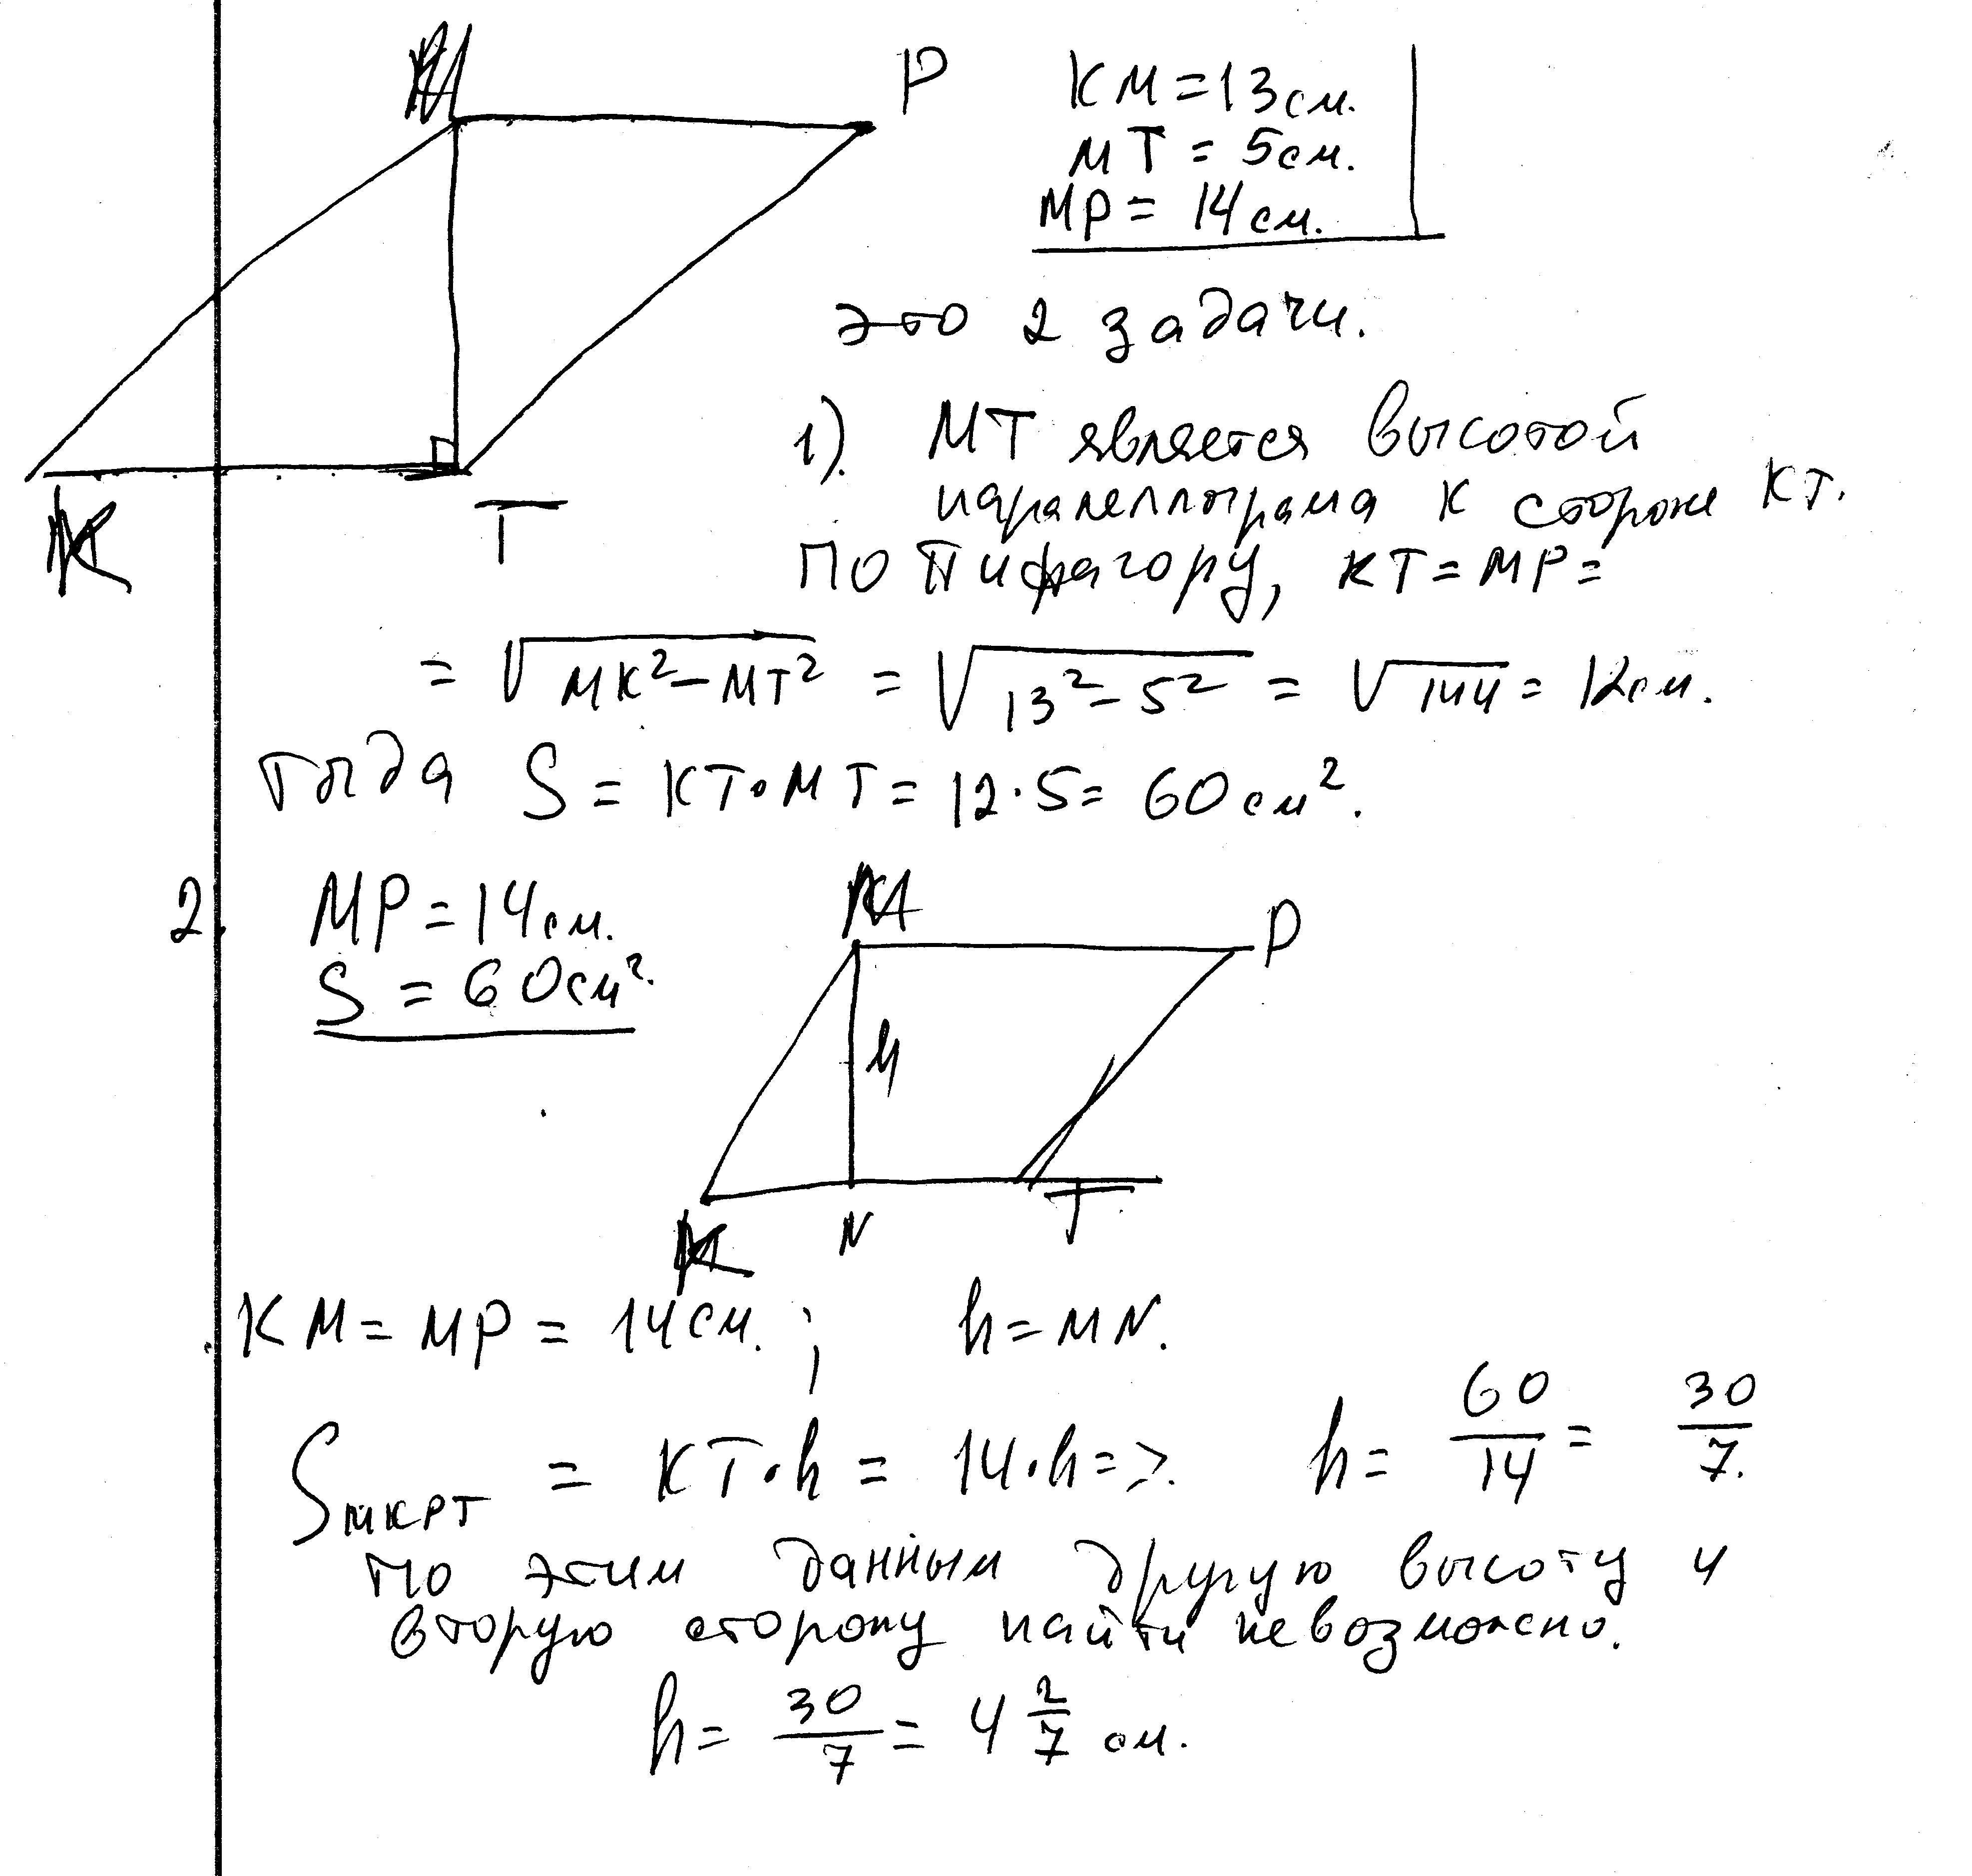 М P
KM = 13 см.
MT = 5 см.
MP = 14 см.
это 2 задачи.
1). MT является высотой
паралеллограма к стороне KT.
K T
по Пифагору, KT = MP =
= √MK² - MT² = √13² - 5² = √144 = 12 см.
тогда S = KT · MT = 12 · 5 = 60 см².
2. MP = 14 см.
S = 60 см².
M P
h
K N T
KM = MP = 14 см. ; h = MN.
S МКРТ = KT · h = 14 · h => h = 60/14 = 30/7.
по этим данным другую высоту и
вторую сторону найти невозможно.
h = 30/7 = 4 2/7 см.